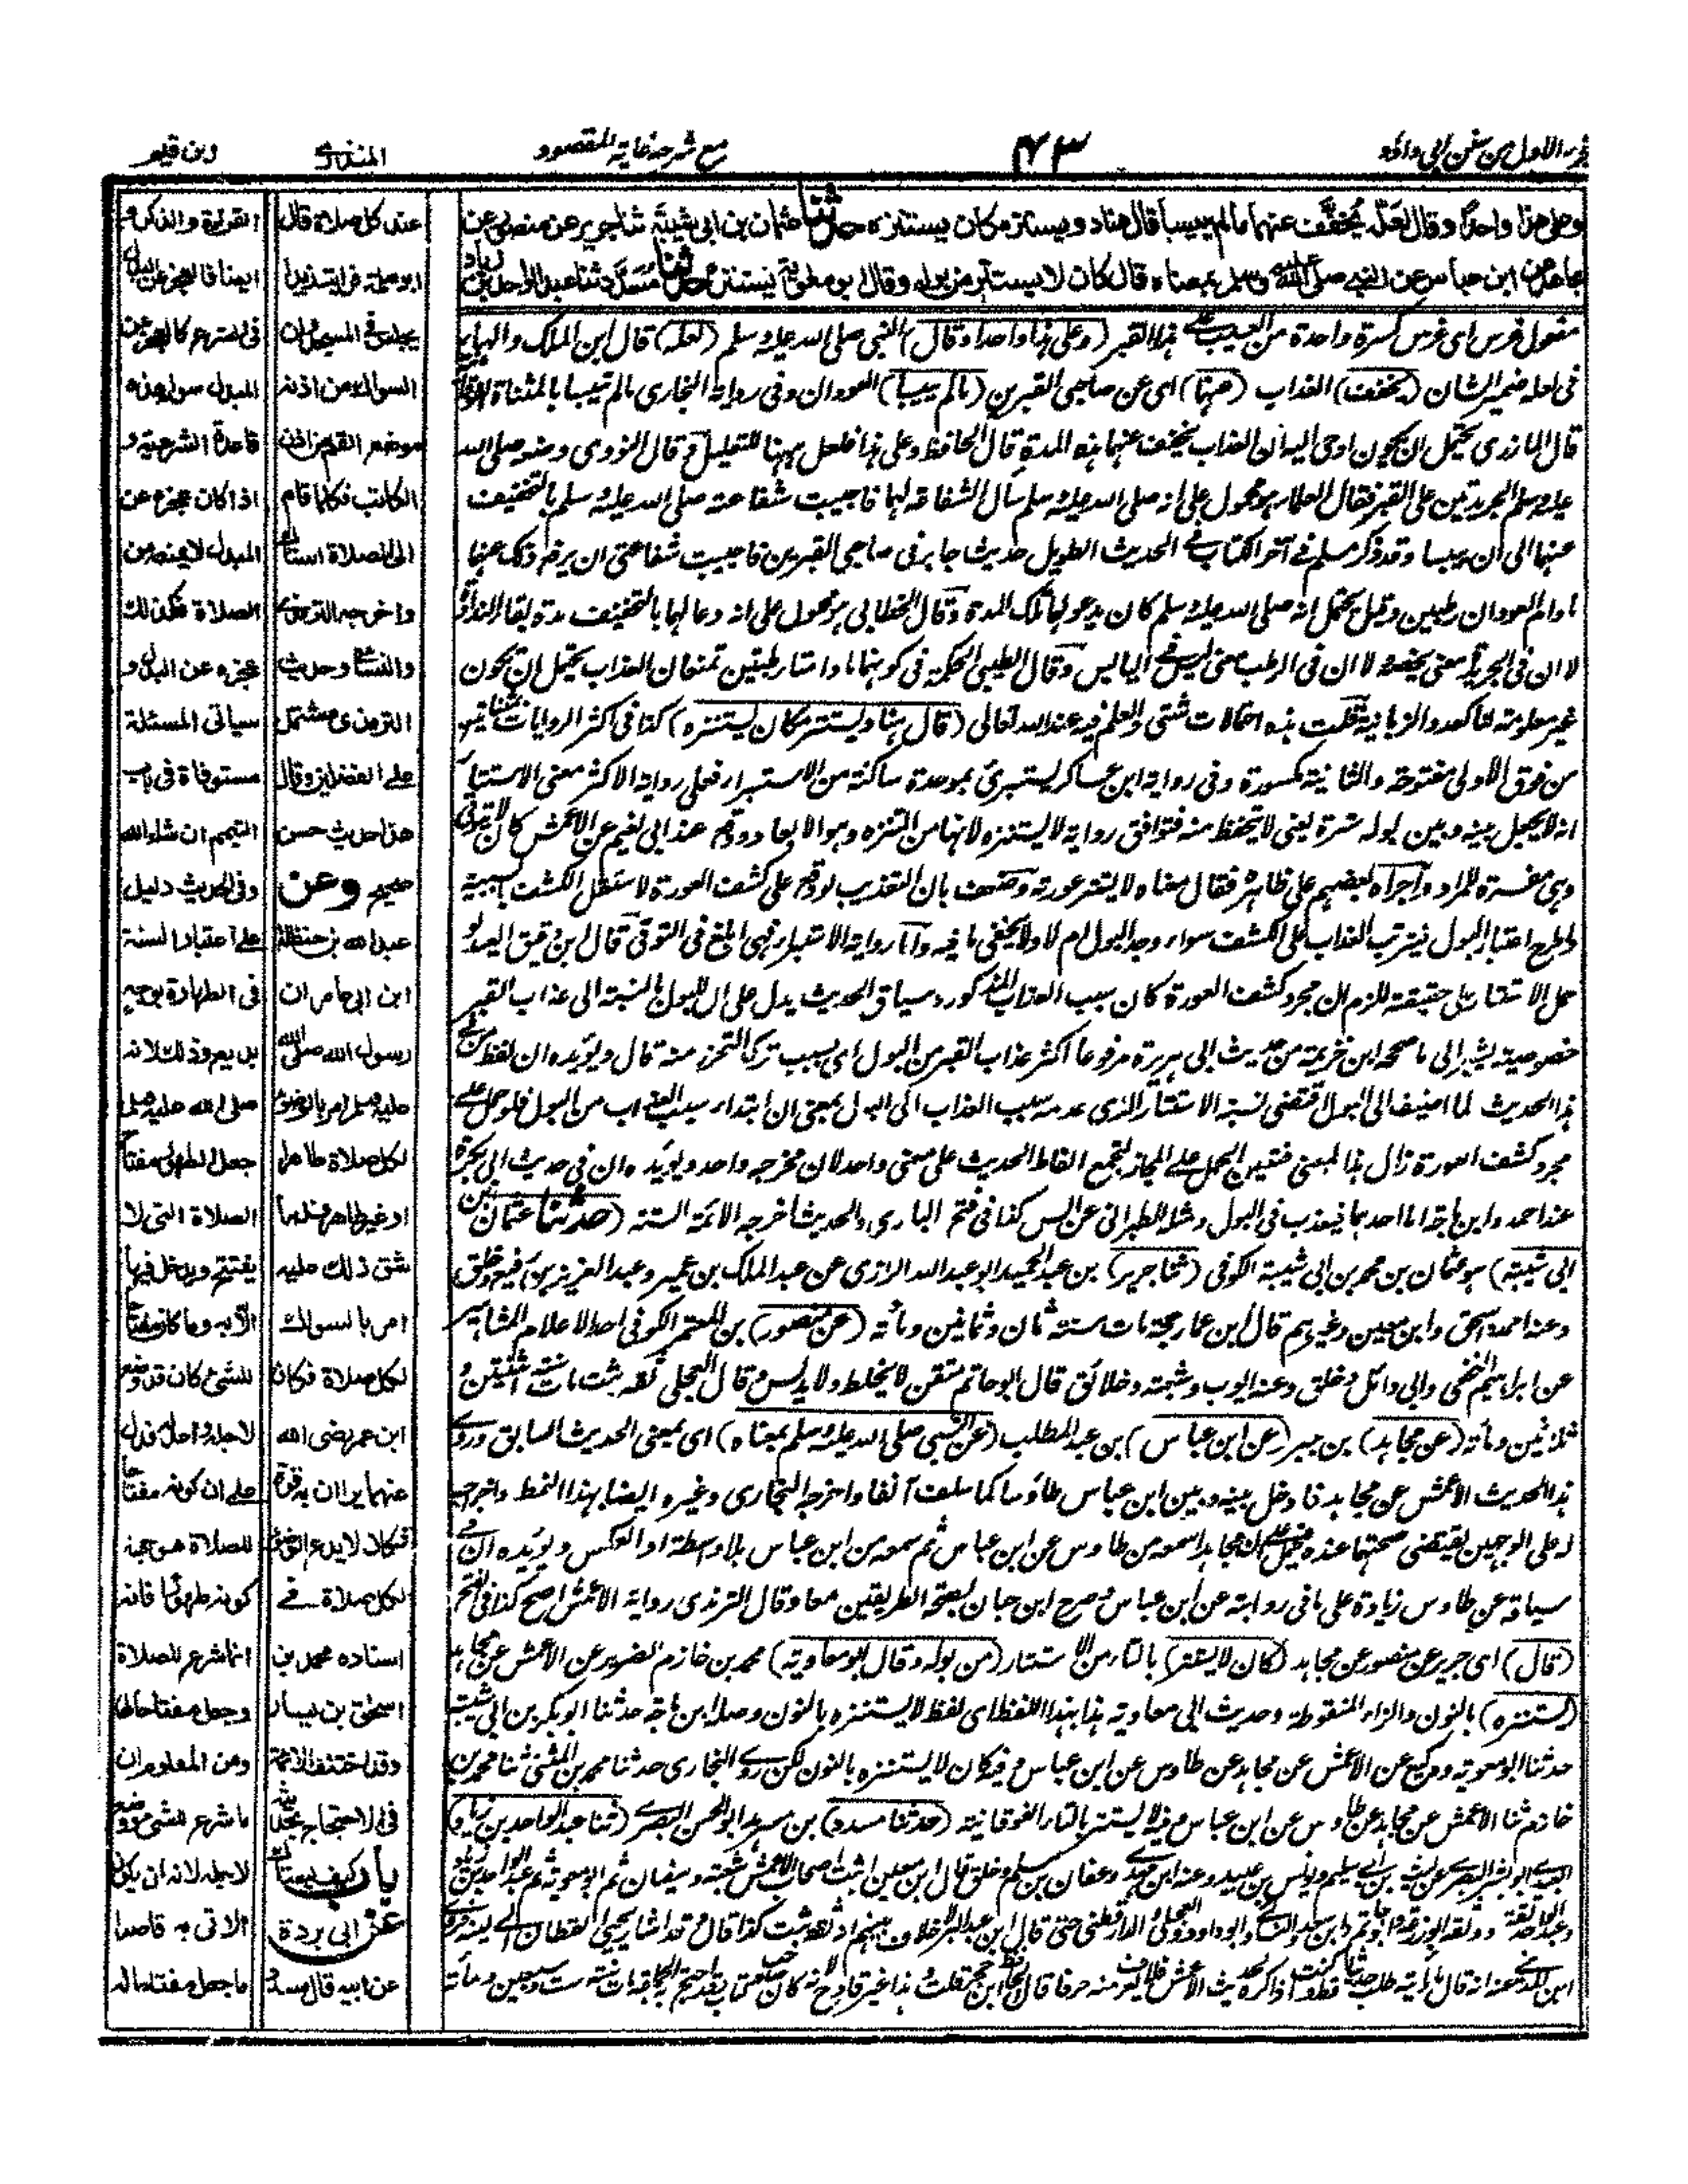 من سنن ابي داؤد
٤٣
مع شرحه غاية المقصود
المنذري
وابن قيم
وعلى هذا واحدًا وقال لعلّه يُخفَّف عنهما مالم ييبسا قال هناد ويستتر مكان يستنزه حدثنا عثمان بن ابي شيبة ثنا جرير عن منصور عن
مجاهد عن ابن عباس عن النبي صلى الله عليه وسلم بمعناه قال كان لا يستتر من بوله وقال ابو معاوية يستنزه حدثنا مُسَدَّد ثنا عبد الواحد بن زياد
مفعول غرس اى غرس كسرة واحدة من العسيب على هذا القبر (وعلى هذا واحدا وقال) النبي صلى الله عليه وسلم (لعله) قال ابن الملك والهاء
فى لعله ضمير الشان (يخفف) العذاب (عنهما) اى عن صاحبي القبرين (مالم ييبسا) العودان وفى رواية البخارى مالم تيبسا بالمثناة
قال المازرى يحتمل ان يكون اوحى اليه ان العذاب يخفف عنهما هذه المدة قال الحافظ وعلى هذا فلعل ههنا للتعليل وقال النووى وضعه صلى الله
عليه وسلم الجريدتين على القبر فقال العلماء هو محمول على انه صلى الله عليه وسلم سأل الشفاعة لهما فاجيبت شفاعته صلى الله عليه وسلم بالتخفيف
عنهما الى ان ييبسا وقد ذكر مسلم فى آخر الكتاب فى الحديث الطويل حديث جابر فى صاحبي القبرين فاجيبت شفاعتى ان يرفه ذلك عنهما
مادام العودان رطبين وقيل يحتمل انه صلى الله عليه وسلم كان يدعو لهما تلك المدة وقال الخطابي هو محمول على انه دعا لهما بالتخفيف مدة بقاء النداوة
لا ان فى الجريدة معنى يخصه ولا ان فى الرطب معنى ليس فى اليابس وقال الطيبي الحكمة فى كونهما ما دامتا رطبتين تمنعان العذاب يحتمل ان تكون
غير معلومة لنا كعدد الزبانية قلت هذه احتمالات شتى والعلم فيه عند الله تعالى (قال هناد يستتر مكان يستنزه) كذا فى اكثر الروايات بمثناتين
من فوق الاولى مفتوحة والثانية مكسورة وفى رواية ابن عساكر يستبرئ بموحدة ساكنة من الاستبراء فعلى رواية الاكثر معنى الاستتار
انه لا يجعل بينه وبين بوله سترة يعنى لا يتحفظ منه فتوافق رواية لا يستنزه لانها من التنزه وهو الابعاد ووقع عند ابي نعيم عن الاعمش كان لا يتوقى
وهى مفسرة للمراد واجراه بعضهم على ظاهره فقال معناه لا يستر عورته وضعف بان التعذيب لو وقع على كشف العورة لاستقل الكشف بالسببية
واطرح اعتبار البول فيترتب العذاب على الكشف سواء وجد البول ام لا ولا يخفى ما فيه واما رواية الاستبراء فهى ابلغ فى التوقى قال ابن دقيق العيد لو
حمل الاستتار على حقيقته للزم ان مجرد كشف العورة كان سبب العذاب المذكور وسياق الحديث يدل على ان للبول بالنسبة الى عذاب القبر
خصوصية يشير الى ما صححه ابن خزيمة من حديث ابي هريرة مرفوعا اكثر عذاب القبر من البول اى بسبب ترك التحرز منه قال ويؤيده ان لفظ من فى
هذا الحديث لما اضيف الى البول اقتضى نسبة الاستتار الذى عدمه سبب العذاب الى البول بمعنى ان ابتداء سبب العذاب من البول فلو حمل على
مجرد كشف العورة زال هذا المعنى فتعين الحمل على المجاز لتجتمع الفاظ الحديث على معنى واحد لان مخرجه واحد ويؤيده ان فى حديث ابي بكرة
عند احمد وابن ماجة اما احدهما فيعذب فى البول ومثله للطبرانى عن انس كذا فى فتح البارى والحديث اخرجه الائمة الستة (حدثنا عثمان بن
ابي شيبة) هو عثمان بن محمد بن ابي شيبة الكوفى (ثنا جرير) بن عبد الحميد ابو عبد الله الرازى عن عبد الملك بن عمير وعبد العزيز بن رفيع وخلق
وعنه احمد واسحق وابن معين وغيرهم قال ابن عمار حجة مات سنة ثمان وثمانين ومأئة (عن منصور) بن المعتمر الكوفى احد الاعلام المشاهير
عن ابراهيم النخعى وابي وائل وخلق وعنه ايوب وشعبة وخلائق قال ابو حاتم متقن لا يخلط ولا يدلس وقال العجلى ثقة ثبت مات سنة اثنتين و
ثلاثين ومأئة (عن مجاهد) بن جبر (عن ابن عباس) بن عبد المطلب (عن النبي صلى الله عليه وسلم بمعناه) اى بمعنى الحديث السابق وروى
هذا الحديث الاعمش عن مجاهد فادخل بينه وبين ابن عباس طاؤسا كما سلف آنفا واخرجه البخارى وغيره ايضا بهذا النمط واخراجه
له على الوجهين يقتضى صحتهما عنده فيحمل على ان مجاهدا سمعه من طاوس عن ابن عباس ثم سمعه من ابن عباس بلا واسطة او العكس ويؤيده ان فى
سياقه عن طاوس زيادة على ما فى روايته عن ابن عباس وصرح ابن حبان بصحة الطريقين معا وقال الترمذى رواية الاعمش اصح كذا فى الفتح
(قال) اى جرير عن منصور عن مجاهد (كان لا يستتر) بالتاء من الاستتار (من بوله وقال ابو معاوية) محمد بن خازم الضرير عن الاعمش عن مجاهد
(يستنزه) بالنون والزاء المنقوطة وحديث ابي معاوية هذا بهذا اللفظ اى لفظ لا يستنزه بالنون وصله ابن ماجة حدثنا ابو بكر بن ابي شيبة
حدثنا ابو معوية ووكيع عن الاعمش عن مجاهد عن طاوس عن ابن عباس وفيه كان لا يستنزه بالنون لكن روى البخارى حدثنا محمد بن المثنى ثنا محمد بن
خازم ثنا الاعمش عن مجاهد عن طاوس عن ابن عباس وفيه لا يستتر بالتاء الفوقانية (حدثنا مسدد) بن مسرهد ابو الحسن البصرى (ثنا عبد الواحد بن زياد)
ابو بشر البصرى عن ليث بن ابي سليم ويونس بن عبيد وعنه ابن مهدى وعفان بن مسلم وخلق قال ابن معين اثبت اصحاب الاعمش شعبة وسفيان ثم ابو معوية ثم عبد الواحد بن زياد
وعبد الواحد ثقة ووثقه ابو زرعة وابو حاتم وابن سعد والنسائى وابو داود والعجلى والدارقطنى حتى قال ابن عبد البر لا خلاف بينهم انه ثقة ثبت كذا قال وقد اشار يحيى القطان الى لينه فروى
ابن المدينى عنه انه قال ما رايته طلب حديثا قط وكنت اذاكره بحديث الاعمش فلا يعرف منه حرفا قال الحافظ ابن حجر قلت وهذا غير قادح لانه كان صاحب كتاب وقد احتج به الجماعة مات سنة ست وسبعين ومأئة
عند كل صلاة قال
ابو سلمة فرايت زيدا
يجلس فى المسجد وان
السواك من اذنه
موضع القلم من اذن
الكاتب فكلما قام
الى الصلاة استاك
واخرجه الترمذى
والنسائى وحديث
الترمذى مشتمل
على الفضلين وقال
هذا حديث حسن
صحيح وعن
عبد الله بن حنظلة
ابن ابي عامر ان
رسول الله صلى الله
عليه وسلم امر بالوضوء
لكل صلاة طاهرا
او غير طاهر فلما
شق ذلك عليه
امر بالسواك
لكل صلاة فكان
ابن عمر رضى الله
عنهما يرا ان به قوة
فكان لا يدع الوضوء
لكل صلاة فى
اسناده محمد بن
اسحق بن يسار
وقد اختلف الائمة
فى الاحتجاج بحديثه
باب كيف يستاك
عن ابي بردة
عن ابيه قال مسدد
القراءة والذكر و
ايضا فالعجز عن البدل
فى الشرع كالعجز عن
المبدل سواء هذه
قاعدة الشرعية و
اذا كان عجزه عن
المبدل لا يمنعه من
الصلاة فكذلك
عجزه عن البدل و
سياتى المسئلة
مستوفاة فى باب
التيمم ان شاء الله
وفى الحديث دليل
على اعتبار النية
فى الطهارة بوجه
بديع وذلك لانه
صلى الله عليه وسلم
جعل الطهور مفتاح
الصلاة التى لا
يفتتح ويدخل فيها
الا به وما كان مفتاحا
للشئ كان قد وضع
لاجله واعد له فدل
على ان كونه مفتاحا
للصلاة هو جهة
كونه طهورا فانه
انما شرع للصلاة
وجعل مفتاحا لها
ومن المعلوم ان
ما شرع للشئ ووضع
لاجله لا بد ان يكون
الآتى به قاصدا
ما جعل مفتاحا له